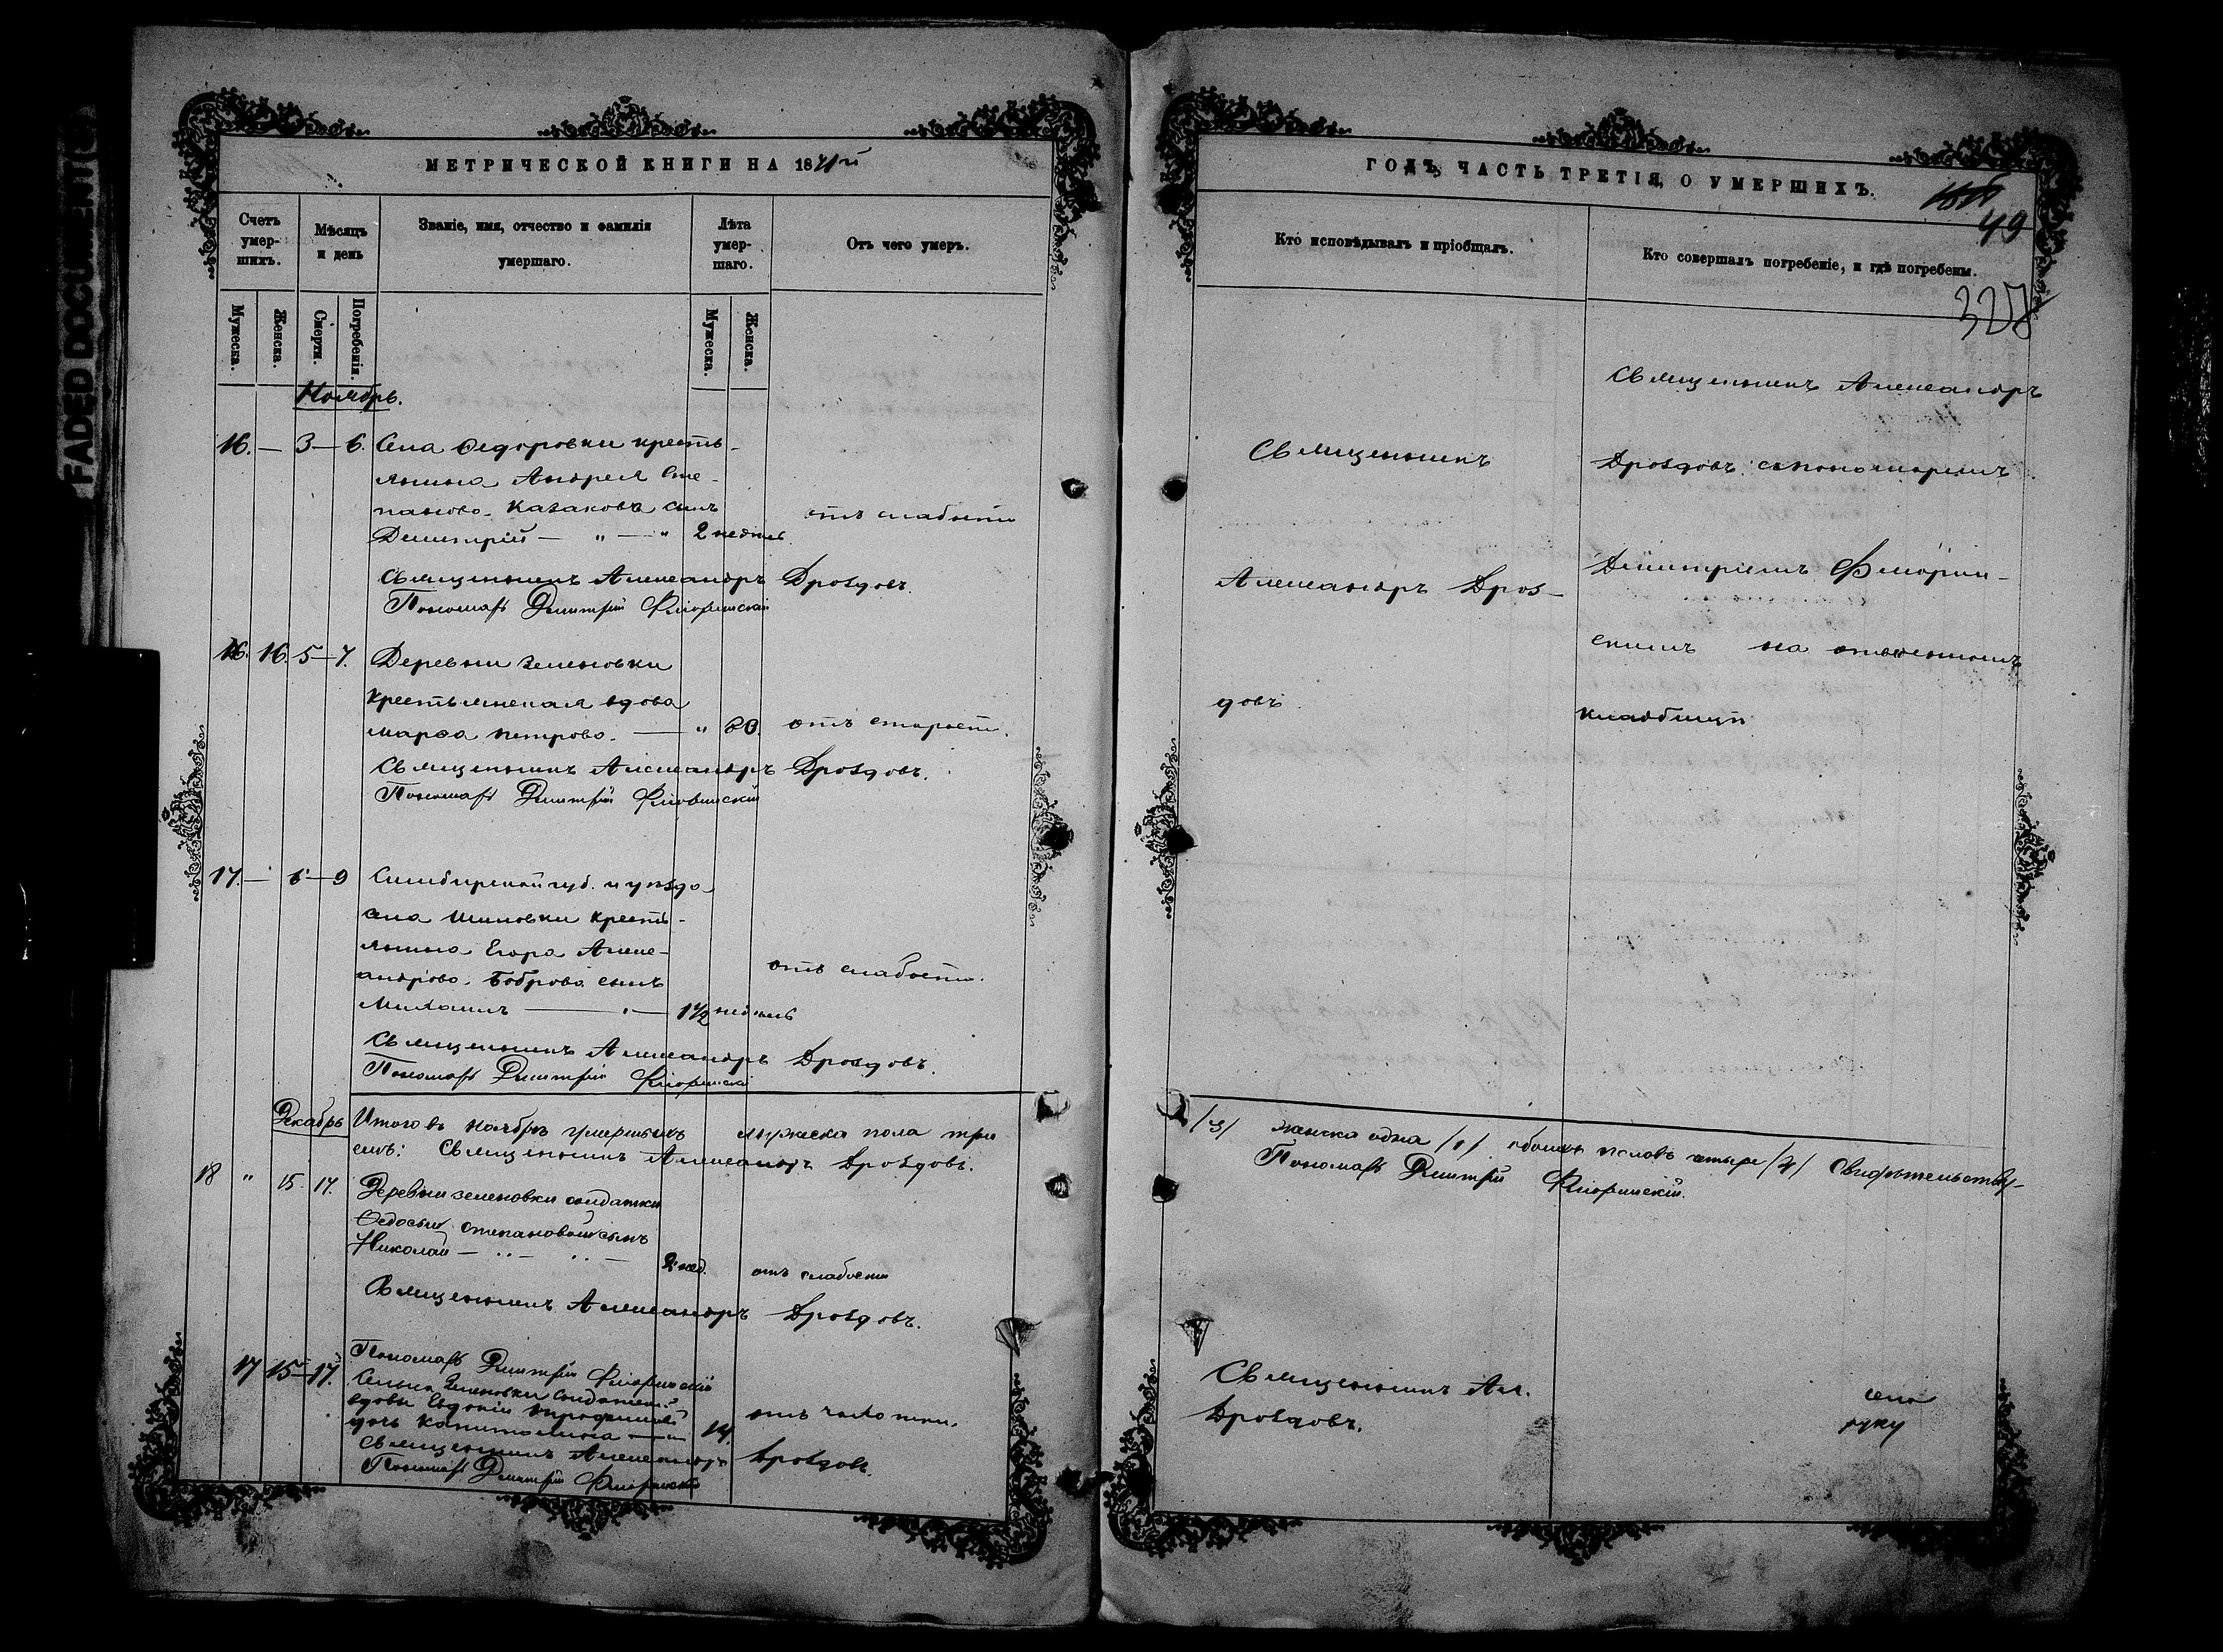 FADED DOCUMENT
МЕТРИЧЕСКОЙ КНИГИ НА 1871й
Счетъ умер-шихъ.
Мѣсяцъ и день
Званіе, имя, отчество и фамилія умершаго.
Лѣта умер-шаго.
Отъ чего умеръ.
Мужеска.
Женска.
Смерти.
Погребенія.
Мужеска.
Женска.
Ноябрь.
16. — 3 — 6. Села Федоровки кресть-
янина Андрея Сте-
панова Казакова сынъ
Димитрій — " — " 2 недѣль
отъ слабости
Священникъ Александръ Дроздовъ.
Пономарь Дмитрій Флоринскій
16. 5 — 7. Деревни Зеленовки
крестьянская вдова
Марѳа Петрова. — " 80. отъ старости.
Священникъ Александръ Дроздовъ.
Пономарь Дмитрій Флоринскій
17. — 6 — 9 Симбирской губ. и уѣзда
села Шиловки кресть-
янина Егора Алекс-
андрова Боброва сынъ
Михаилъ — 1½ недѣль
отъ слабости.
Священникъ Александръ Дроздовъ.
Пономарь Дмитрій Флоринскій
Декабрь
Итого въ ноябрѣ умершихъ мужеска пола три
емъ: Священникъ Александръ Дроздовъ.
18 " 15. 17. Деревни Зеленовки солдатки
Федосьи Степановой сынъ
Николай — 2 нед. отъ слабости
Священникъ Александръ Дроздовъ.
Пономарь Дмитрій Флоринскій
17 15 — 17. Зеленовки
вдовы Евдокіи
дочь Капитолина — 14. отъ чахотки.
Священникъ Александръ Дроздовъ.
Пономарь Дмитрій Флоринскій
ГОДЪ, ЧАСТЬ ТРЕТІЯ, О УМЕРШИХЪ.
49
Кто исповѣдывалъ и пріобщалъ.
Кто совершалъ погребеніе, и гдѣ погребены.
328
Священникъ
Александръ Дроз-
довъ
Священникъ Александръ
Дроздовъ с пономаремъ
Димитріемъ Флорин-
скимъ на отведенномъ
кладбищѣ
/3/ женска одна /1/ обоихъ половъ четыре /4/ Свидѣтельству-
Пономарь Дмитрій Флоринскій.
Священникъ Ал.
Дроздовъ.
руку